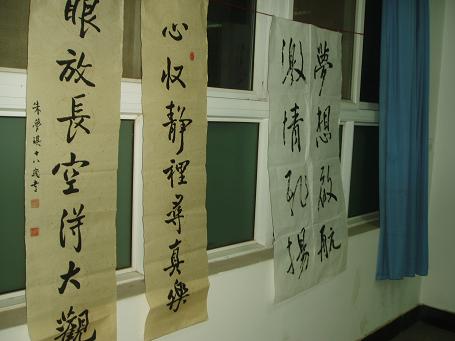 夢想啟航
激情飛揚
心收靜裡尋真樂
眼放長空得大觀
朱夢十八